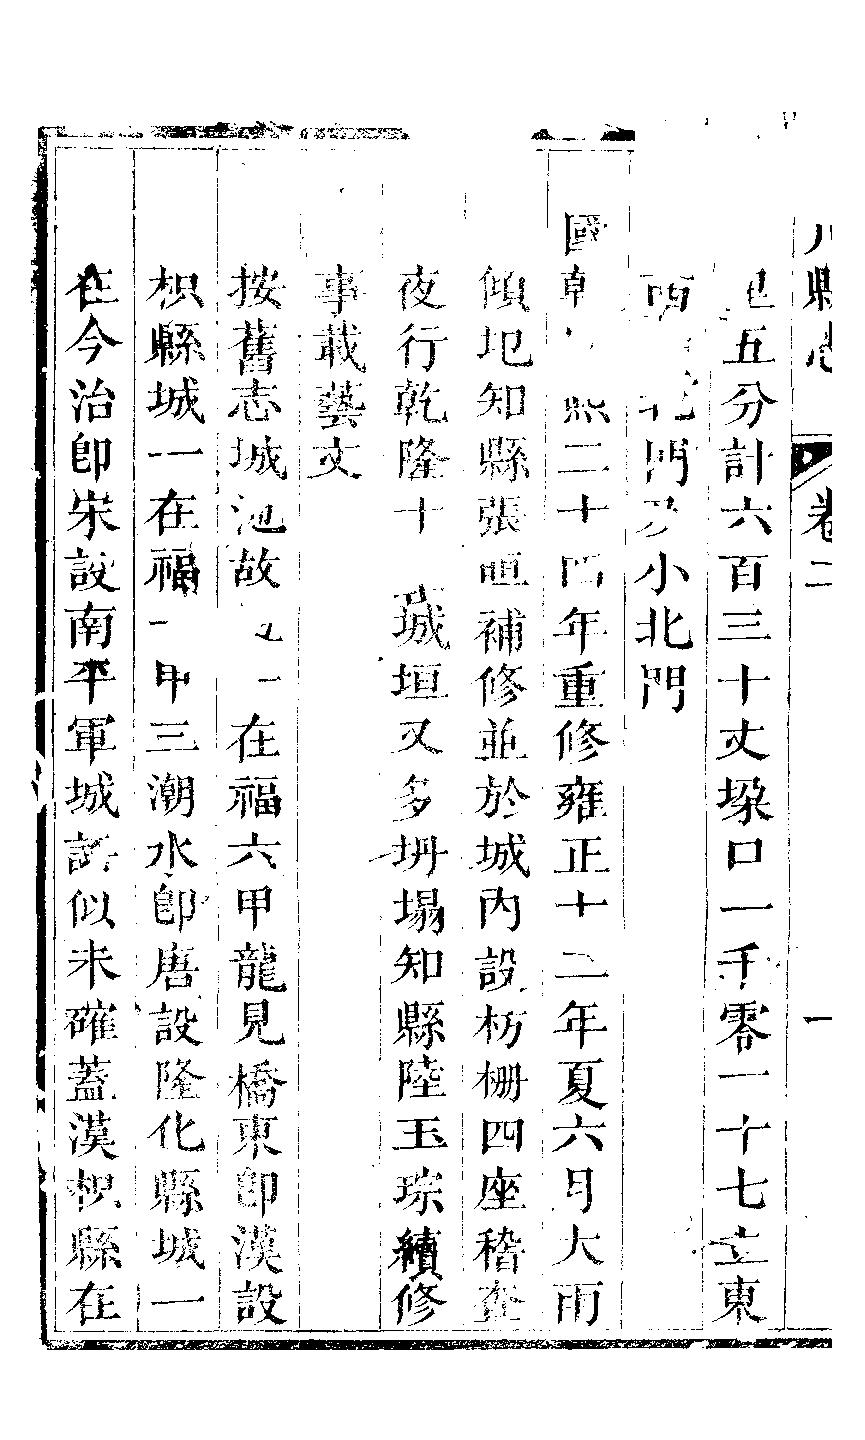 縣志 卷二 一
五分計六百三十丈垜口一千零一十七立東
西北門及小北門
國朝熙二十四年重修雍正十二年夏六月大雨
傾圯知縣張補修並於城內設枋柵四座稽查
夜行乾隆十城垣又多坍塌知縣陸玉琮續修
事載藝文
按舊志城池故一在福六甲龍見橋東卽漢設
枳縣城一在福甲三潮水卽唐設隆化縣城一
在今治卽宋設南平軍城許似未確蓋漢枳縣在